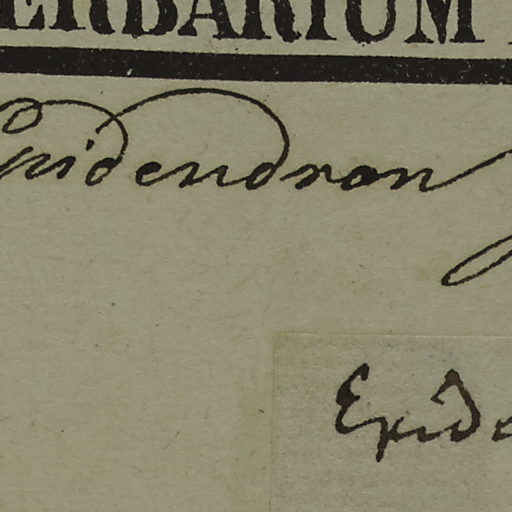 ERBARIUM
Epidendron
Epide